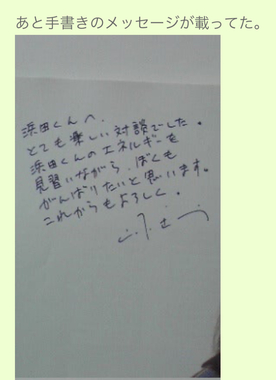 あと手書きのメッセージが載ってた。
浜田くんへ、
とても楽しい対談でした。
浜田くんのエネルギーを
見習いながら、ぼくも
がんばりたいと思います。
これからもよろしく。